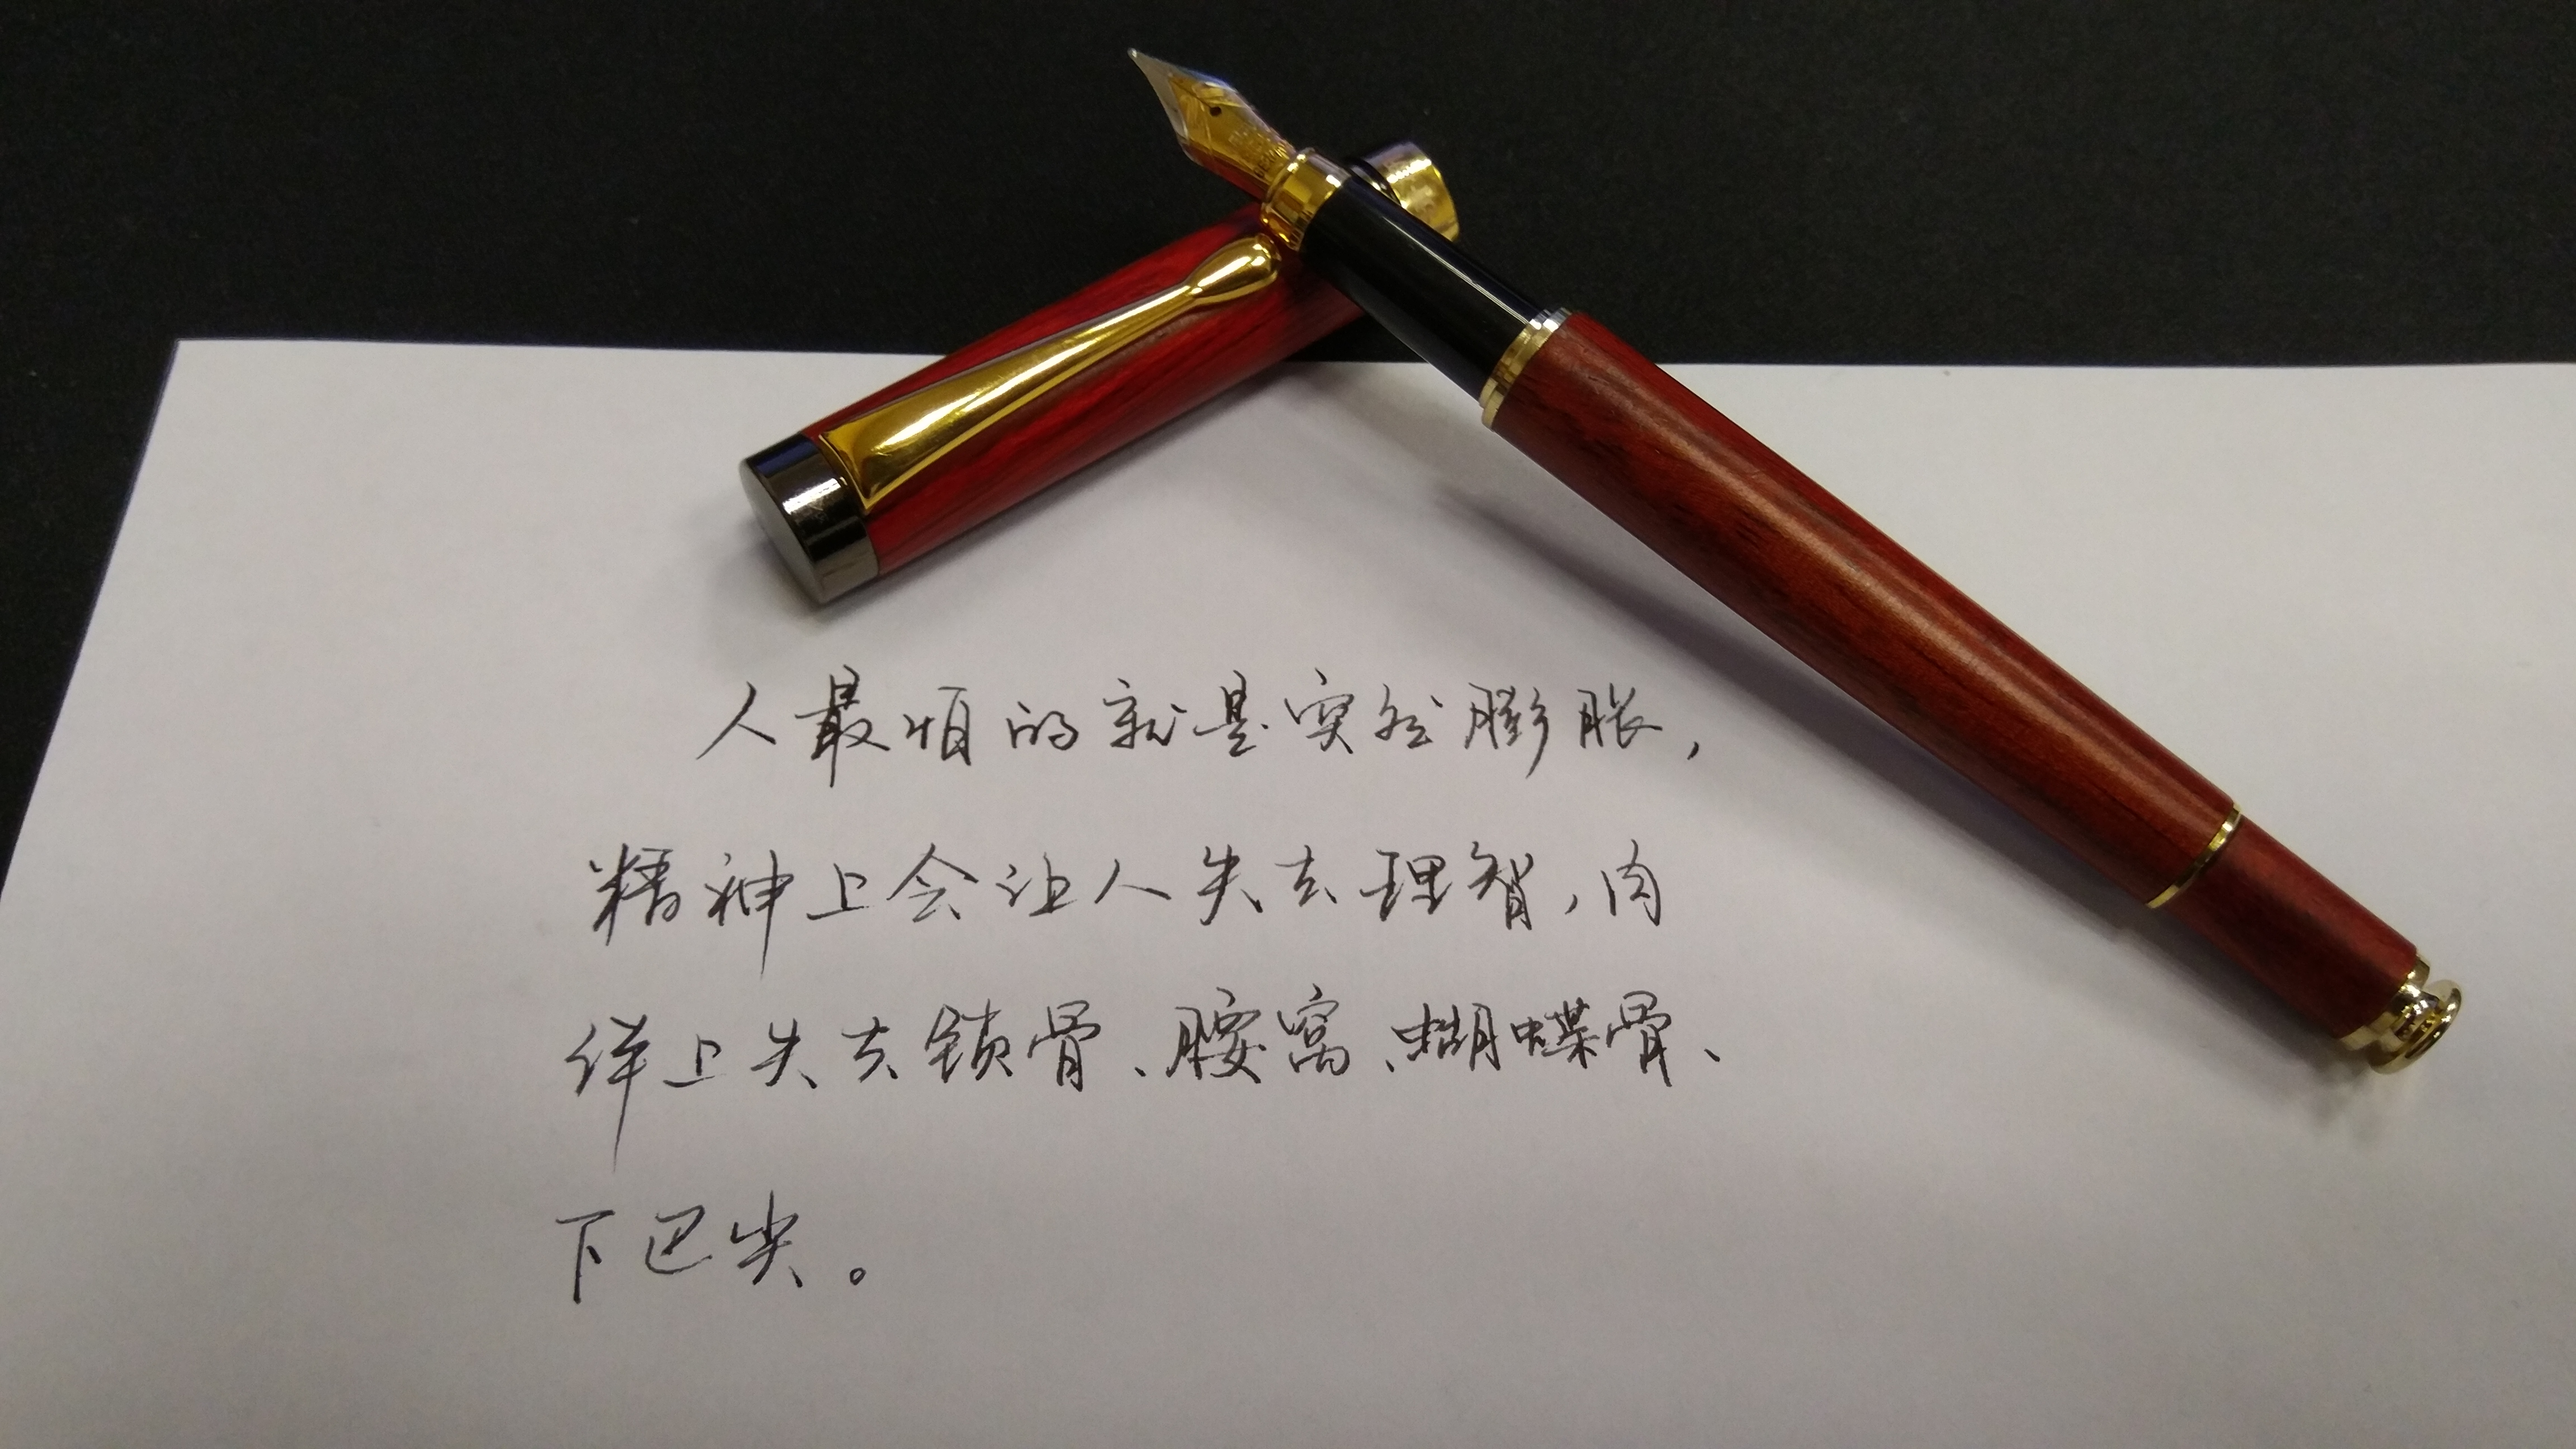 人最怕的就是突然膨胀，
精神上会让人失去理智，肉
体上失去锁骨、腰窝、蝴蝶骨、
下巴尖。